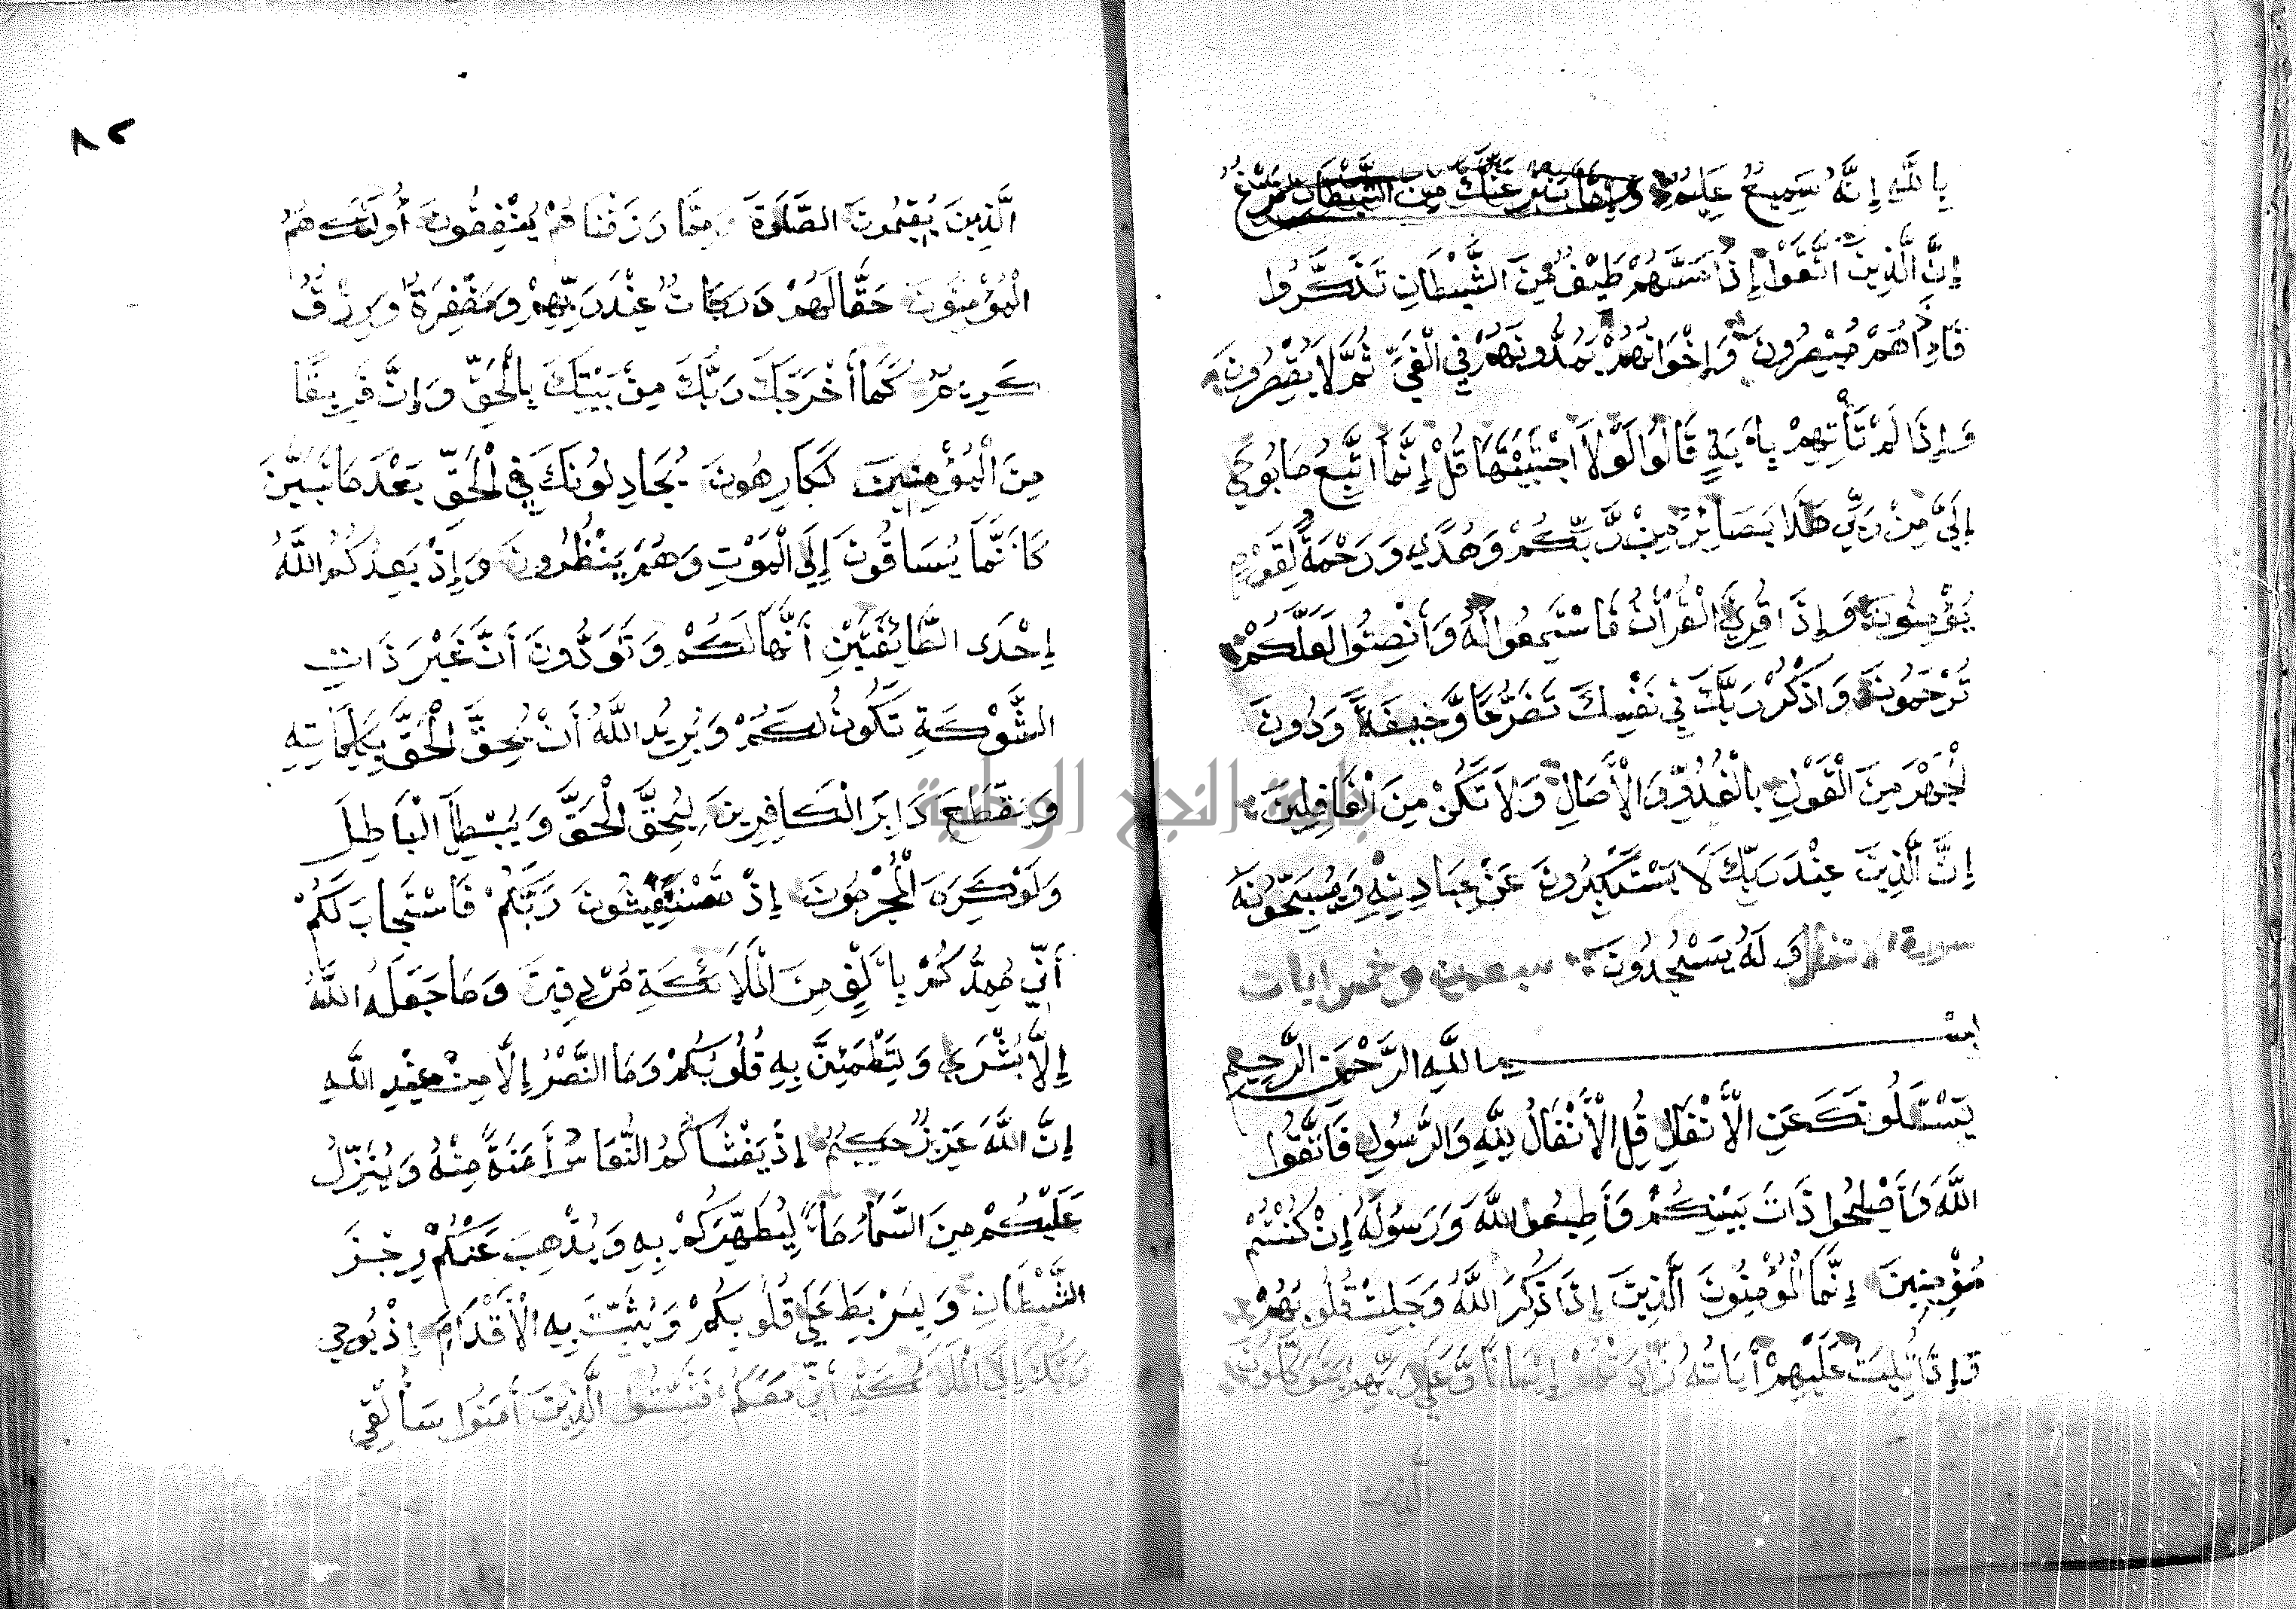 بِاللَّهِ إِنَّهُ سَمِيعٌ عَلِيمٌ وَإِمَّا يَنْزَغَنَّكَ مِنَ الشَّيْطَانِ نَزْغٌ
إِنَّ الَّذِينَ اتَّقَوْا إِذَا مَسَّهُمْ طَيْفٌ مِّنَ الشَّيْطَانِ تَذَكَّرُوا
فَإِذَا هُمْ مُبْصِرُونَ وَإِخْوَانُهُمْ يَمُدُّونَهُمْ فِي الْغَيِّ ثُمَّ لَا يُقْصِرُونَ
وَإِذَا لَمْ تَأْتِهِمْ بِآيَةٍ قَالُوا لَوْلَا اجْتَبَيْتَهَا قُلْ إِنَّمَا أَتَّبِعُ مَا يُوحَي
إِلَيَّ مِنْ رَبِّي هَذَا بَصَائِرُ مِنْ رَّبِّكُمْ وَهُدًي وَرَحْمَةٌ لِقَوْمٍ
يُؤْمِنُونَ وَإِذَا قُرِئَ الْقُرْأَنُ فَاسْتَمِعُوا لَهُ وَأَنْصِتُوا لَعَلَّكُمْ
تُرْحَمُونَ وَاذْكُرْ رَبَّكَ فِي نَفْسِكَ تَضَرُّعًا وَّخِيفَةً وَدُونَ
الْجَهْرِ مِنَ الْقَوْلِ بِالْغُدُوِّ وَالْأَصَالِ وَلَا تَكُنْ مِنَ الْغَافِلِينَ
إِنَّ الَّذِينَ عِنْدَ رَبِّكَ لَا يَسْتَكْبِرُونَ عَنْ عِبَادَتِهِ وَيُسَبِّحُونَهُ
سورة الانفال وَلَهُ يَسْجُدُونَ سبعون وخمس ايات
بِسْمِ اللَّهِ الرَّحْمَنِ الرَّحِيمِ
يَسْئَلُونَكَ عَنِ الْأَنْفَالِ قُلِ الْأَنْفَالُ لِلَّهِ وَالرَّسُولِ فَاتَّقُوا
اللَّهَ وَأَصْلِحُوا ذَاتَ بَيْنِكُمْ وَأَطِيعُوا اللَّهَ وَرَسُولَهُ إِنْ كُنْتُمْ
مُؤْمِنِينَ إِنَّمَا الْمُؤْمِنُونَ الَّذِينَ إِذَا ذُكِرَ اللَّهُ وَجِلَتْ قُلُوبُهُمْ
وَإِذَا تُلِيَتْ عَلَيْهِمْ أَيَاتُهُ زَادَتْهُمْ إِيمَانًا وَّعَلَي رَبِّهِمْ يَتَوَكَّلُونَ
الذين
٨٢
الَّذِينَ يُقِيمُونَ الصَّلَوةَ وَمِمَّا رَزَقْنَاهُمْ يُنْفِقُونَ أُولَئِكَ هُمُ
الْمُؤْمِنُونَ حَقًّا لَهُمْ دَرَجَاتٌ عِنْدَ رَبِّهِمْ وَمَغْفِرَةٌ وَرِزْقٌ
كَرِيمٌ كَمَا أَخْرَجَكَ رَبُّكَ مِنْ بَيْتِكَ بِالْحَقِّ وَإِنَّ فَرِيقًا
مِنَ الْمُؤْمِنِينَ لَكَارِهُونَ يُجَادِلُونَكَ فِي الْحَقِّ بَعْدَ مَا تَبَيَّنَ
كَأَنَّمَا يُسَاقُونَ إِلَي الْمَوْتِ وَهُمْ يَنْظُرُونَ وَإِذْ يَعِدُكُمُ اللَّهُ
إِحْدَى الطَّائِفَتَيْنِ أَنَّهَا لَكُمْ وَتَوَدُّونَ أَنَّ غَيْرَ ذَاتِ
الشَّوْكَةِ تَكُونُ لَكُمْ وَيُرِيدُ اللَّهُ أَنْ يُحِقَّ الْحَقَّ بِكَلِمَاتِهِ
وَيَقْطَعَ دَابِرَ الْكَافِرِينَ لِيُحِقَّ الْحَقَّ وَيُبْطِلَ الْبَاطِلَ
وَلَوْ كَرِهَ الْمُجْرِمُونَ إِذْ تَسْتَغِيثُونَ رَبَّكُمْ فَاسْتَجَابَ لَكُمْ
أَنِّي مُمِدُّكُمْ بِأَلْفٍ مِنَ الْمَلَائِكَةِ مُرْدِفِينَ وَمَا جَعَلَهُ اللَّهُ
إِلَّا بُشْرَي وَلِتَطْمَئِنَّ بِهِ قُلُوبُكُمْ وَمَا النَّصْرُ إِلَّا مِنْ عِنْدِ اللَّهِ
إِنَّ اللَّهَ عَزِيزٌ حَكِيمٌ إِذْ يَغْشَاكُمُ النُّعَاسُ أَمَنَةً مِنْهُ وَيُنَزِّلُ
عَلَيْكُمْ مِنَ السَّمَاءِ مَاءً لِيُطَهِّرَكُمْ بِهِ وَيُذْهِبَ عَنْكُمْ رِجْزَ
الشَّيْطَانِ وَلِيَرْبِطَ عَلَي قُلُوبِكُمْ وَيُثَبِّتَ بِهِ الْأَقْدَامَ إِذْ يُوحِي
رَبُّكَ إِلَي الْمَلَائِكَةِ أَنِّي مَعَكُمْ فَثَبِّتُوا الَّذِينَ أَمَنُوا سَأُلْقِي
جامعة النجاح الوطنية